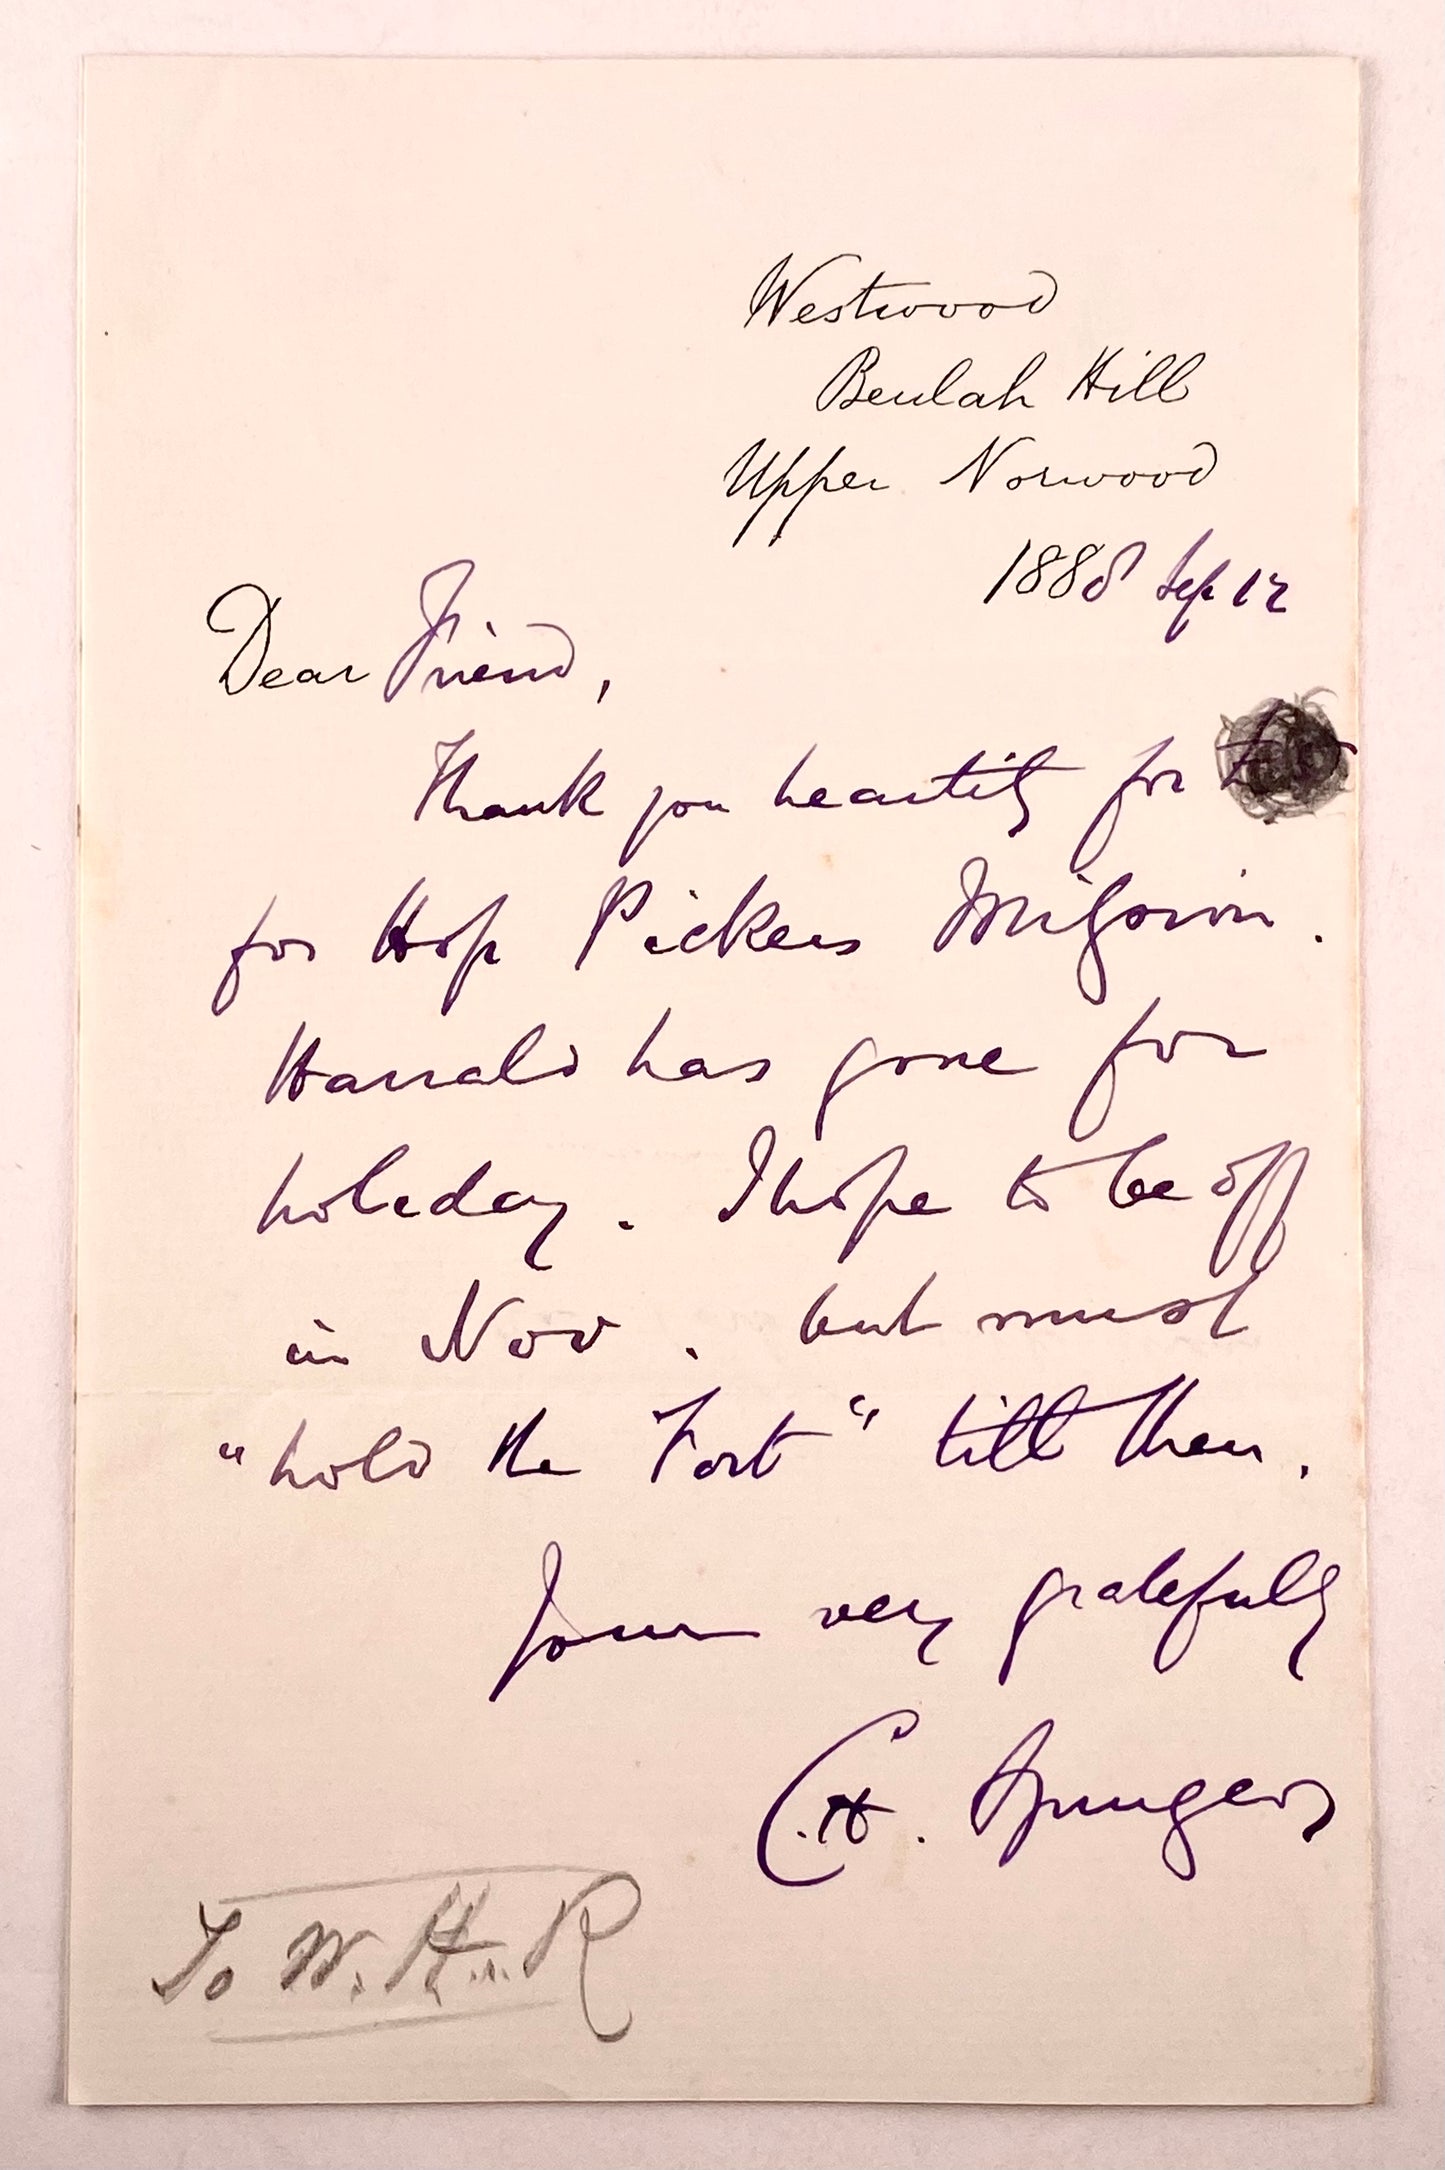 Westwood
Beulah Hill
Upper Norwood
1888 Sep 12
Dear Friend,
Thank you heartily for
for Hop Pickers Mission.
Harrald has gone for
holiday. I hope to be off
in Nov. but must
"hold the Fort" till then.
Yours very gratefully
C. H. Spurgeon
To W. H. R